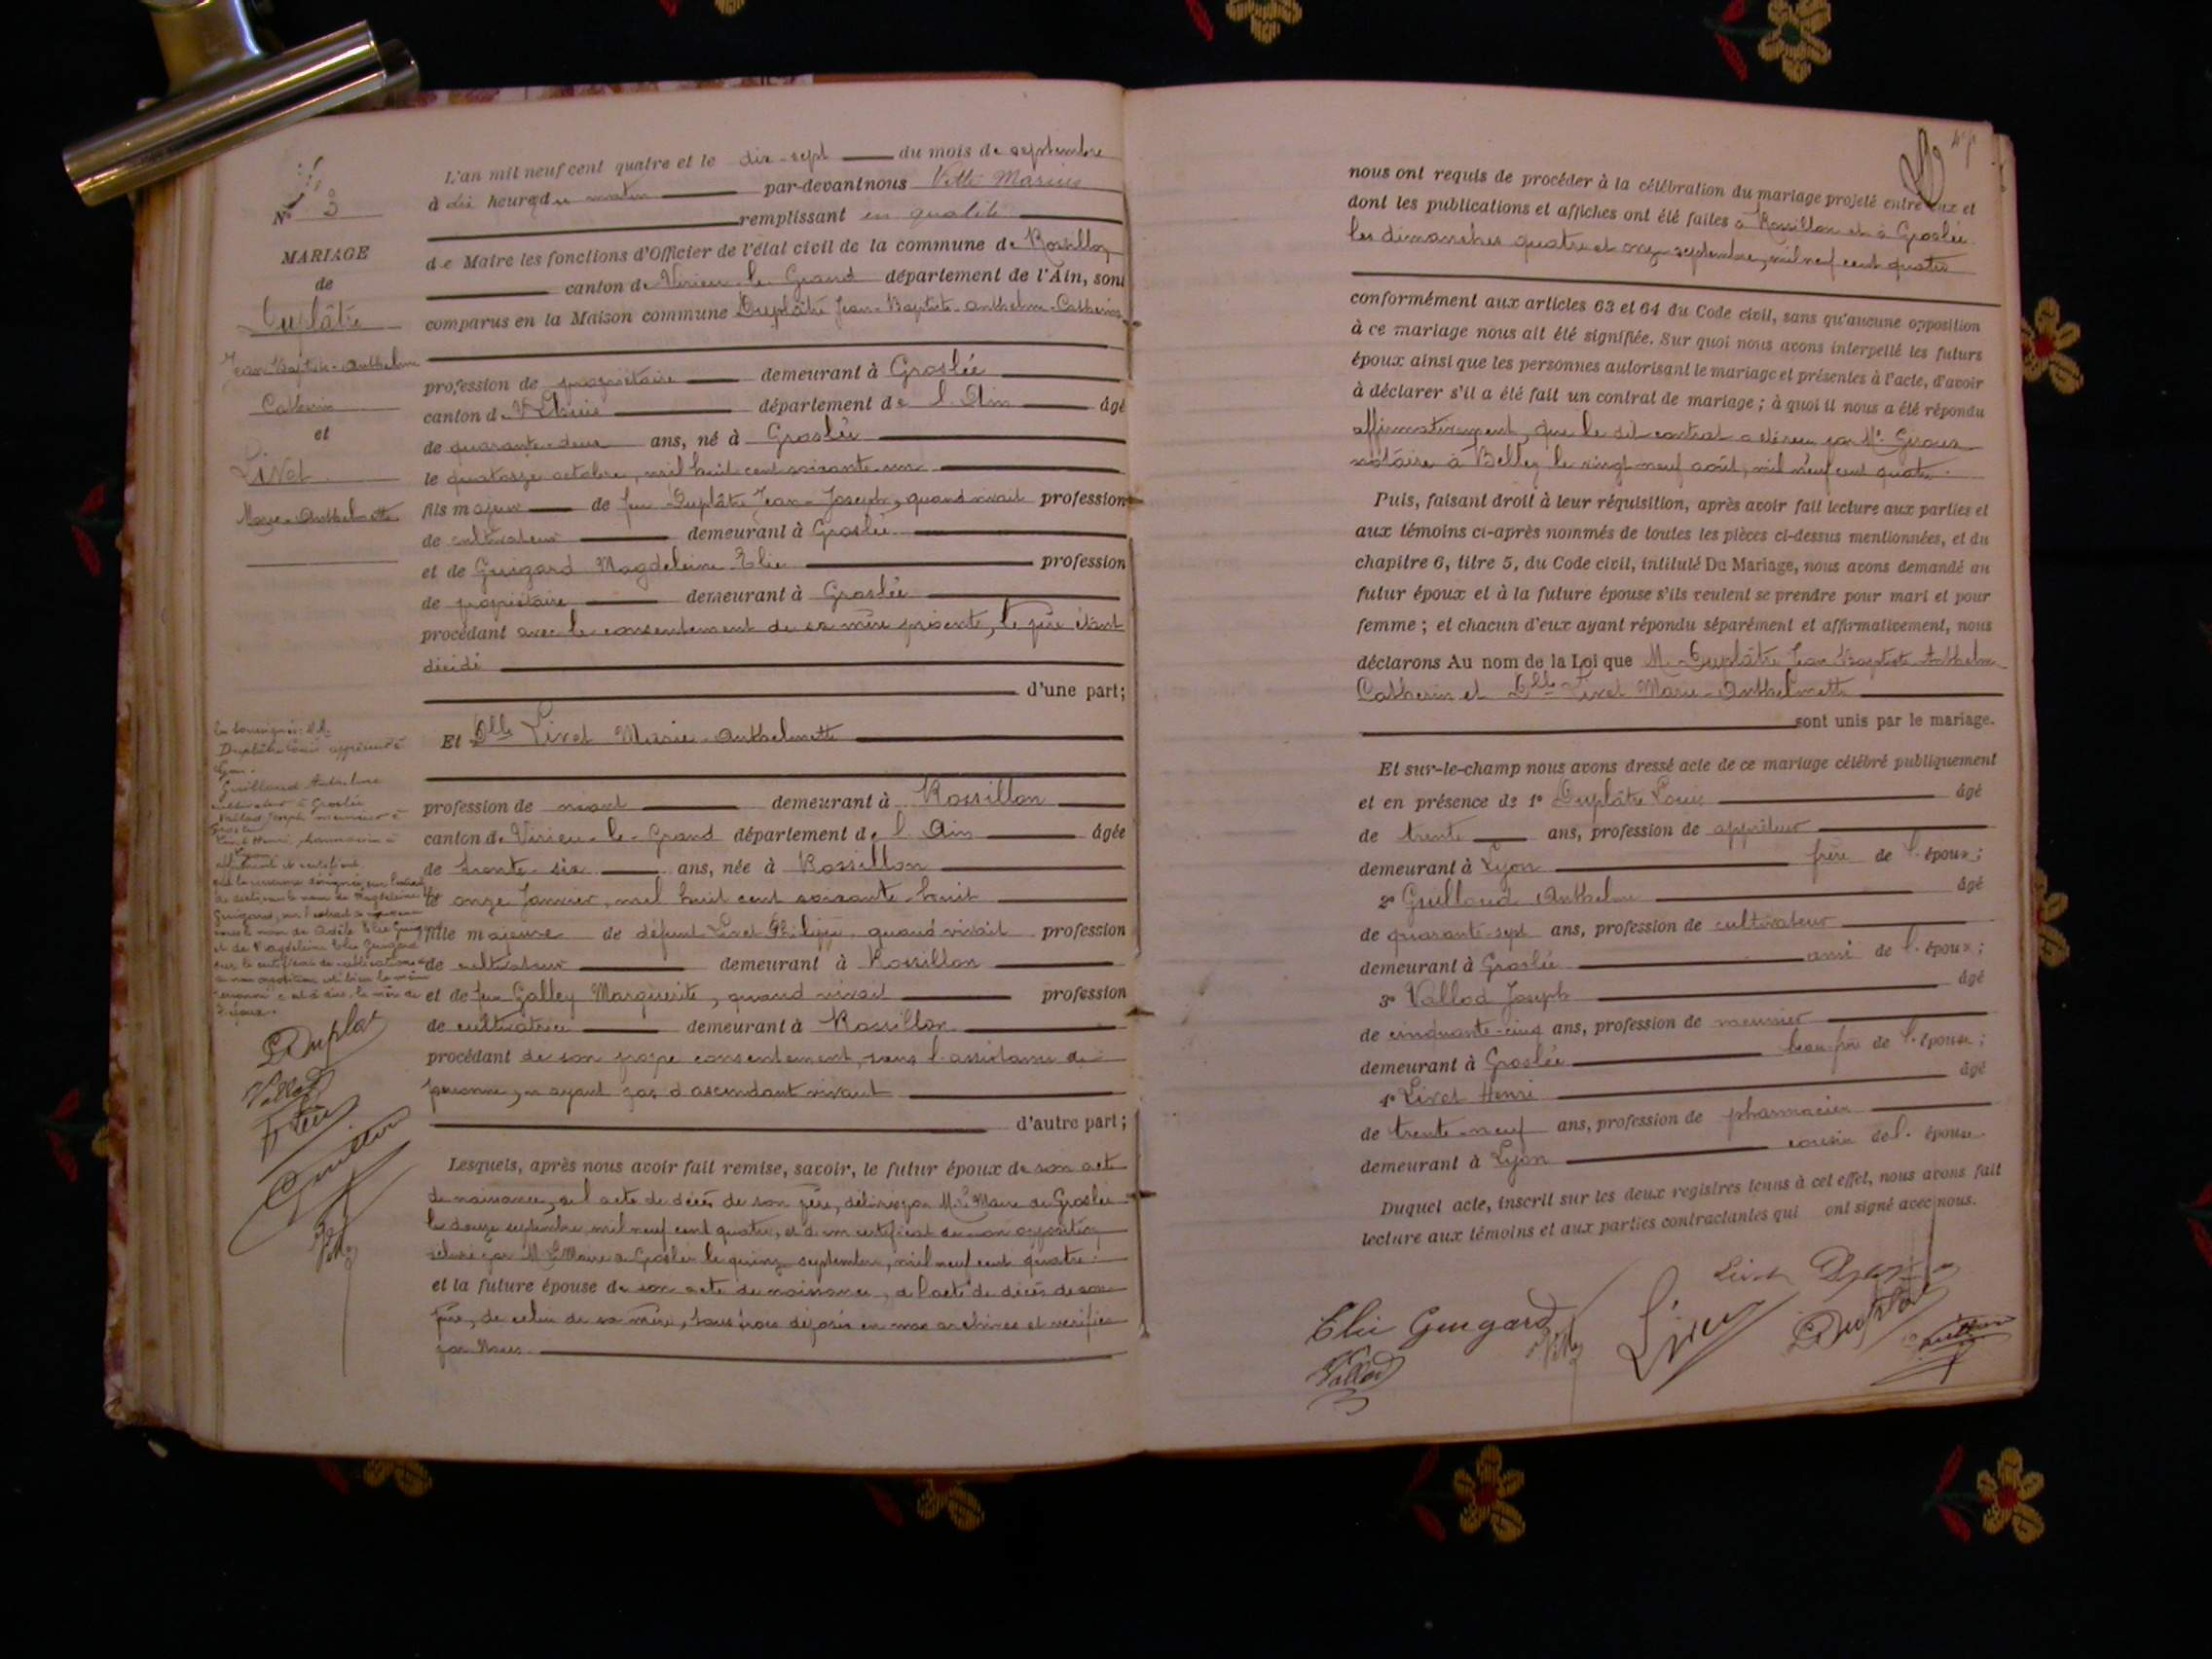 Nº 3
MARIAGE
de
Duplâtre
Jean-Baptiste-Anthelme
Catherin
et
Livet
Marie-Anthelmette
L'an mil neuf cent quatre et le dix-sept du mois de septembre
à dix heures du matin par-devant nous Vette Marius
remplissant en qualité
de Maire les fonctions d'Officier de l'état civil de la commune de Rossillon,
canton de Virieu-le-Grand département de l'Ain, sont
comparus en la Maison commune Duplâtre Jean-Baptiste-Anthelme-Catherin
profession de propriétaire demeurant à Groslée
canton de Lhuis département de l'Ain âgé
de quarante-deux ans, né à Groslée
le quatorze octobre, mil huit cent soixante-un
fils majeur de feu Duplâtre Jean-Joseph, quand vivait profession
de cultivateur demeurant à Groslée
et de Guigard Magdeleine Elie profession
de propriétaire demeurant à Groslée
procédant avec le consentement de sa mère présente, le père étant
décédé
d'une part;
Et Dlle Livet Marie-Anthelmette
profession de néant demeurant à Rossillon
canton de Virieu-le-Grand département de l'Ain âgée
de trente-six ans, née à Rossillon
le onze Janvier, mil huit cent soixante-huit
fille majeure de défunt Livet Philippe, quand vivait profession
de cultivateur demeurant à Rossillon
et de feue Galley Marguerite, quand vivait profession
de cultivatrice demeurant à Rossillon
procédant de son propre consentement, sans l'assistance de
personne, n'ayant pas d'ascendant vivant
d'autre part;
Lesquels, après nous avoir fait remise, savoir, le futur époux de son acte
de naissance, de l'acte de décès de son père, délivrés par Mr le Maire de Groslée
le douze septembre mil neuf cent quatre, et d'un certificat de non opposition
délivré par Mr le Maire de Groslée le quinze septembre, mil neuf cent quatre;
et la future épouse de son acte de naissance, de l'acte de décès de son
père, de celui de sa mère, tous trois déposés en nos archives et vérifiés
par Nous
Les soussignés: MM.
Duplâtre Louis apprêteur à
Lyon.
Guilloud Anthelme
cultivateur à Groslée
Vallod Joseph meunier à
Groslée
Livet Henri, pharmacien à
Lyon
affirment et certifient
que la personne désignée sur l'extrait
de décès sous le nom de Magdeleine
Guigard, sur l'extrait de naissance
sous le nom de Adèle Elie Guigard
et de Magdeleine Elie Guigard
sur le certificat de publications
de non opposition, est bien la même
personne c'est à dire la mère de
l'époux.
Duplat
Vallod
nous ont requis de procéder à la célébration du mariage projeté entre eux et
dont les publications et affiches ont été faites à Rossillon et à Groslée
les dimanches quatre et onze septembre, mil neuf cent quatre
conformément aux articles 63 et 64 du Code civil, sans qu'aucune opposition
à ce mariage nous ait été signifiée. Sur quoi nous avons interpellé les futurs
époux ainsi que les personnes autorisant le mariage et présentes à l'acte, d'avoir
à déclarer s'il a été fait un contrat de mariage; à quoi il nous a été répondu
affirmativement, que le dit contrat a été reçu par Me
notaire à Belley le vingt-neuf août, mil neuf cent quatre.
Puis, faisant droit à leur réquisition, après avoir fait lecture aux parties et
aux témoins ci-après nommés de toutes les pièces ci-dessus mentionnées, et du
chapitre 6, titre 5, du Code civil, intitulé Du Mariage, nous avons demandé au
futur époux et à la future épouse s'ils veulent se prendre pour mari et pour
femme; et chacun d'eux ayant répondu séparément et affirmativement, nous
déclarons Au nom de la Loi que M. Duplâtre Jean Baptiste Anthelme
Catherin et Dlle Livet Marie-Anthelmette
sont unis par le mariage.
Et sur-le-champ nous avons dressé acte de ce mariage célébré publiquement
et en présence de 1º Duplâtre Louis âgé
de trente ans, profession de apprêteur
demeurant à Lyon frère de l'époux;
2º Guilloud Anthelme âgé
de quarante-sept ans, profession de cultivateur
demeurant à Groslée ami de l'époux;
3º Vallod Joseph âgé
de cinquante-cinq ans, profession de meunier
demeurant à Groslée beau-frère de l'épouse;
4º Livet Henri âgé
de trente-neuf ans, profession de pharmacien
demeurant à Lyon cousin de l'épouse.
Duquel acte, inscrit sur les deux registres tenus à cet effet, nous avons fait
lecture aux témoins et aux parties contractantes qui ont signé avec nous.
Elie Guigard
Livet
Duplat
Vallod